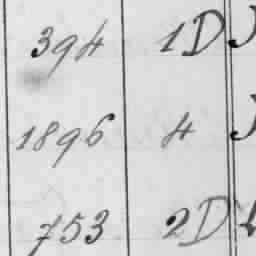 394 1D
1896 4
753 2D